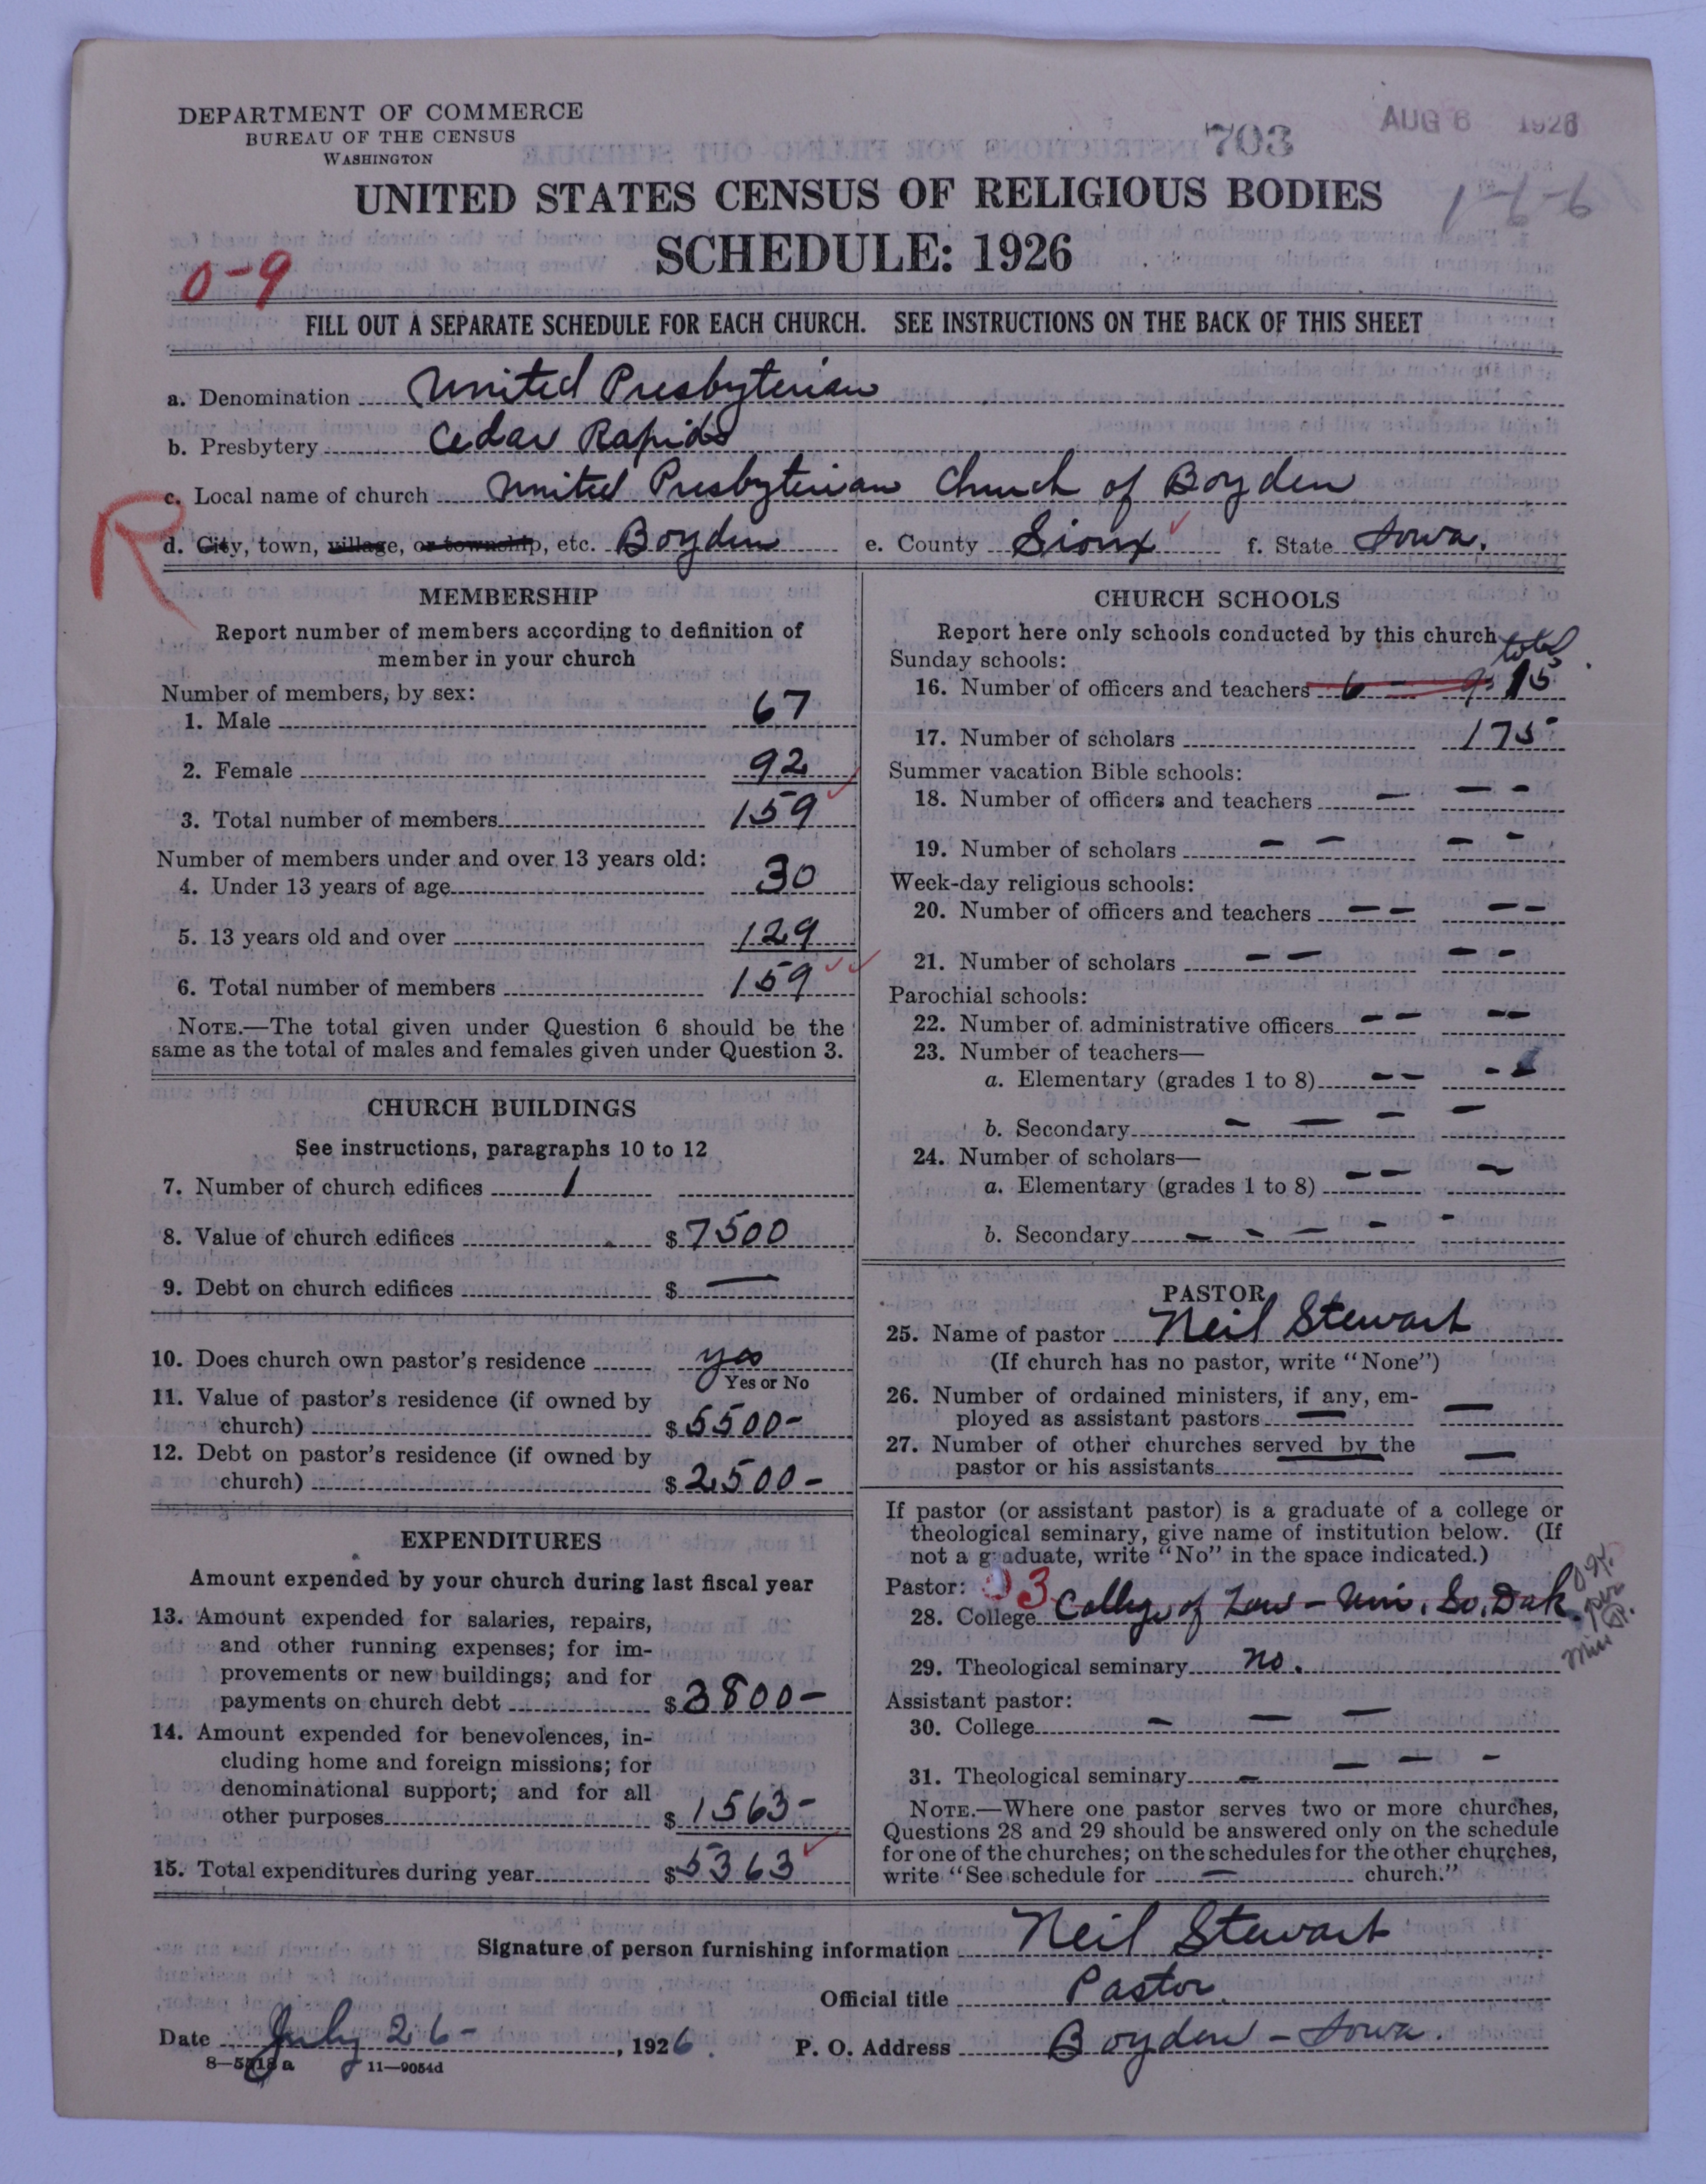 DEPARTMENT OF COMMERCE
BUREAU OF THE CENSUS
WASHINGTON
703
AUG 6 1926
1-6-6
UNITED STATES CENSUS OF RELIGIOUS BODIES
SCHEDULE: 1926
0-9
FILL OUT A SEPARATE SCHEDULE FOR EACH CHURCH. SEE INSTRUCTIONS ON THE BACK OF THIS SHEET
a. Denomination United Presbyterian
b. Presbytery Cedar Rapids
c. Local name of church United Presbyterian Church of Boyden
R
d. City, town, village, or township, etc. Boyden e. County Sioux f. State Iowa.
MEMBERSHIP
Report number of members according to definition of
member in your church
Number of members, by sex:
1. Male 67
2. Female 92
3. Total number of members 159
Number of members under and over 13 years old:
4. Under 13 years of age 30
5. 13 years old and over 129
6. Total number of members 159
NOTE.—The total given under Question 6 should be the
same as the total of males and females given under Question 3.
CHURCH BUILDINGS
See instructions, paragraphs 10 to 12
7. Number of church edifices 1
8. Value of church edifices $ 7500
9. Debt on church edifices $ —
10. Does church own pastor's residence yes
Yes or No
11. Value of pastor's residence (if owned by
church) $ 5500-
12. Debt on pastor's residence (if owned by
church) $ 2500-
EXPENDITURES
Amount expended by your church during last fiscal year
13. Amount expended for salaries, repairs,
and other running expenses; for im-
provements or new buildings; and for
payments on church debt $ 3800-
14. Amount expended for benevolences, in-
cluding home and foreign missions; for
denominational support; and for all
other purposes $ 1563-
15. Total expenditures during year $ 5363
CHURCH SCHOOLS
Report here only schools conducted by this church
total
Sunday schools:
16. Number of officers and teachers 6 - 9 15
17. Number of scholars 175
Summer vacation Bible schools:
18. Number of officers and teachers — — -
19. Number of scholars - — — -
Week-day religious schools:
20. Number of officers and teachers — — — —
21. Number of scholars — — — -
Parochial schools:
22. Number of administrative officers — — — —
23. Number of teachers—
a. Elementary (grades 1 to 8) — — - -
b. Secondary - — — —
24. Number of scholars—
a. Elementary (grades 1 to 8) — — —
b. Secondary — - — - -
PASTOR
25. Name of pastor Neil Stewart
(If church has no pastor, write "None")
26. Number of ordained ministers, if any, em-
ployed as assistant pastors — —
27. Number of other churches served by the
pastor or his assistants — —
If pastor (or assistant pastor) is a graduate of a college or
theological seminary, give name of institution below. (If
not a graduate, write "No" in the space indicated.)
Pastor: 03
28. College College of Law - Uni. So. Dak.
O.K. per Miss P.
29. Theological seminary no.
Assistant pastor:
30. College - — —
31. Theological seminary - — — -
NOTE.—Where one pastor serves two or more churches,
Questions 28 and 29 should be answered only on the schedule
for one of the churches; on the schedules for the other churches,
write "See schedule for — church."
Signature of person furnishing information Neil Stewart
Official title Pastor.
Date July 26- , 1926. P. O. Address Boyden - Iowa.
8—5218a 11—9054d